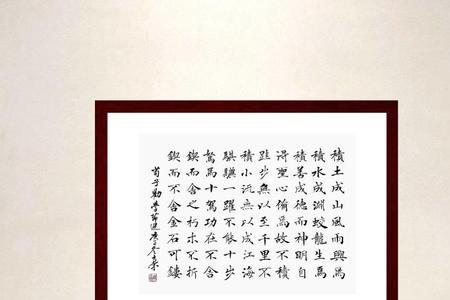 積土成山風雨興焉
積水成淵蛟龍生焉
積善成德而神明自
得聖心備焉故不積
跬步無以至千里不
積小流无以成江海
騏驥一躍不能十步
駑馬十駕功在不舍
鍥而舍之朽木不折
鍥而不舍金石可鏤
荀子勸學節選